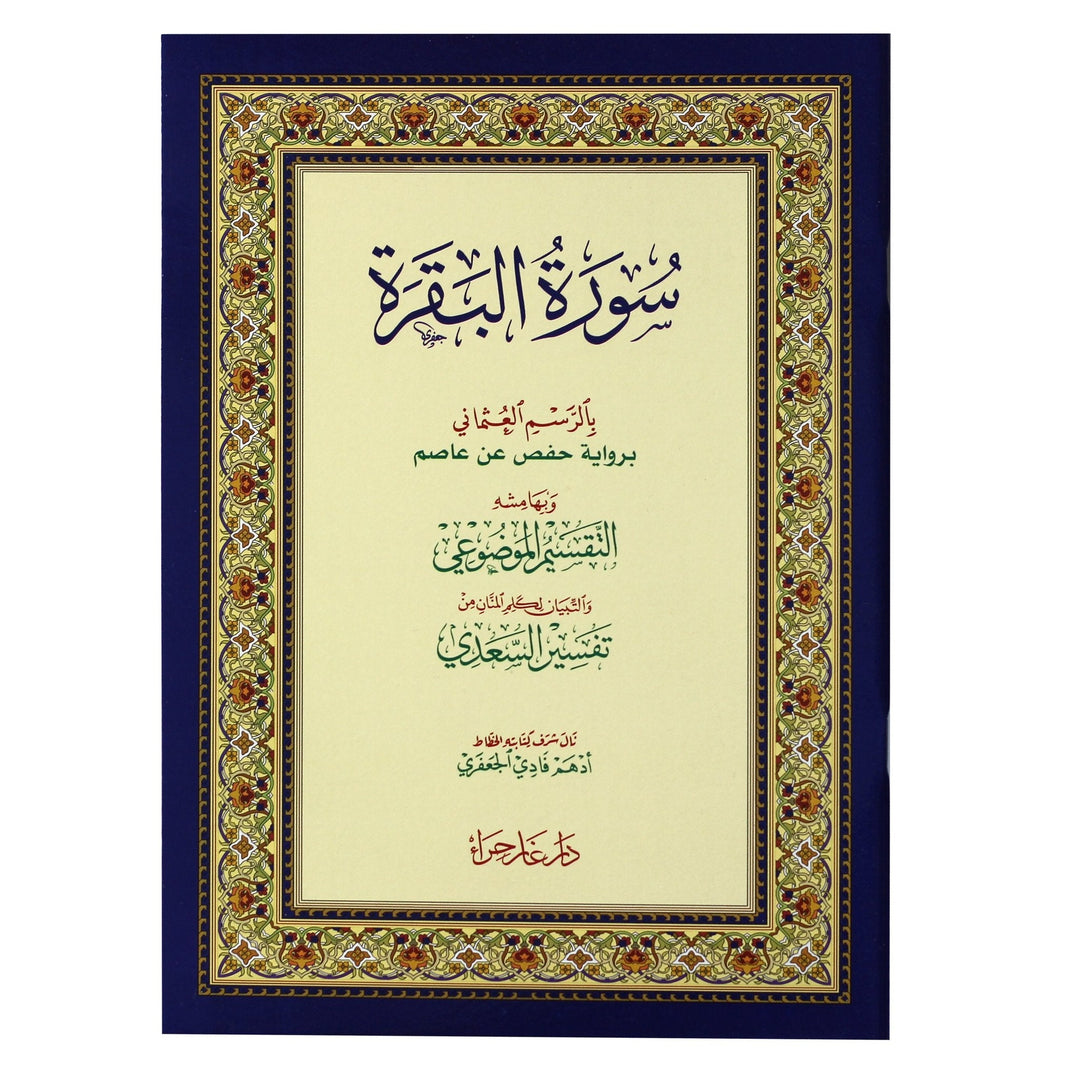 سُورَةُ البَقَرَة
جعفري
بِٱلرَّسْمِ ٱلْعُثْمَانِي
برواية حفص عن عاصم
وَبِهَامِشِهِ
التَّقْسِيْمُ المَوْضُوْعِي
وَالتِّبْيَان لِكَلِمِ المَنَّانِ مِنْ
تَفْسِيْرِ السَّعْدِي
نَالَ شَرَفَ كِتَابَتِهِ الخَطَّاط
أدْهَمْ فَادِيْ الجَعْفَرِيْ
دَار غَار حِرَاء